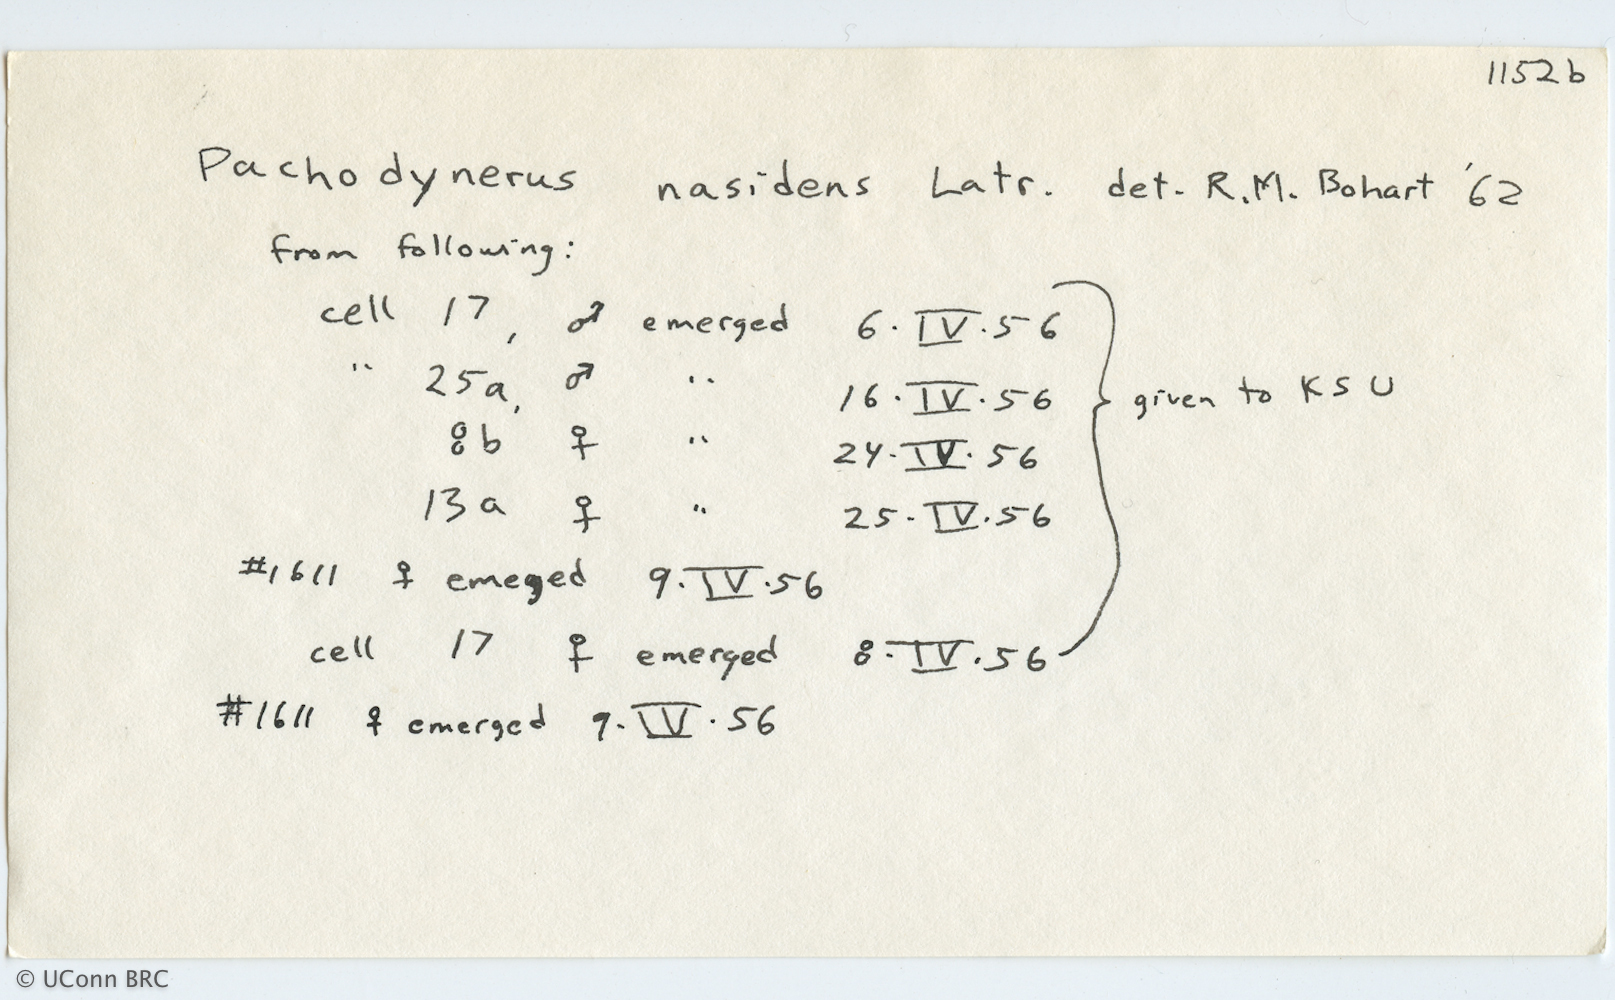 1152b
Pachodynerus nasidens Latr. det. R.M. Bohart '62
from following:
cell 17, ♂ emerged 6.IV.56
" 25a, ♂ " 16.IV.56
given to KSU
8b ♀ " 24.IV.56
13a ♀ " 25.IV.56
#1611 ♀ emeged 9.IV.56
cell 17 ♀ emerged 8.IV.56
#1611 ♀ emerged 9.IV.56
© UConn BRC